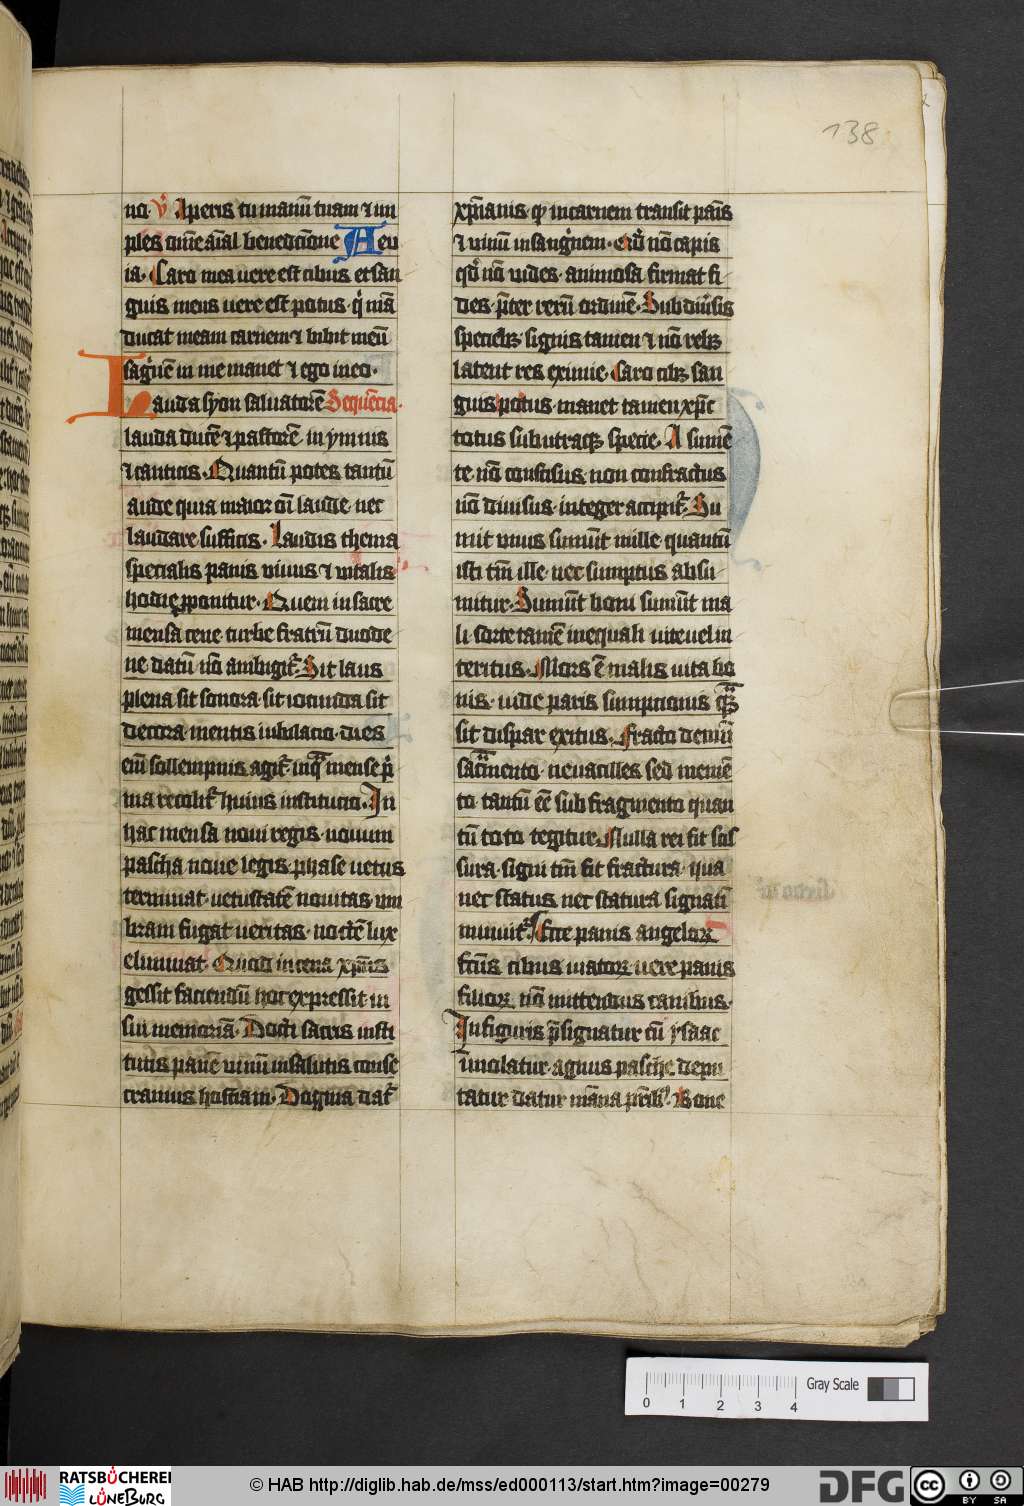 138
no. V̓ Aperis tu manū tuam ⁊ im
ples om̄e aīal benediction̄e Aeu
ia. Caro mea vere est cibus et san
guis meus vere est potus. qͥ mā
ducat meam carnem ⁊ bibit meū
sagͥnē in me manet ⁊ ego in eo.
Lauda syon saluatorē Sequēcia.
lauda ducē ⁊ pastorē. in ymnis
⁊ canticis. Quantū potes tantū
aude quia maior oī laude. nec
laudare sufficis. Laudis thema
specialis panis viuus ⁊ vitalis
hodie ꝓponitur. Quem in sacre
mensa cene. turbe fratrū duode
ne datū nō ambigit᷑. Sit laus
plena sit sonora. sit iocunda sit
decora. mentis iubilacio. dies
enī sollempnis agit᷑. in qᷓ mense pͥ
ma recolit᷑ huius institucio. In
hac mensa noui regis. nouum
pascha noue legis. phase vetus
terminat. vetustatē nouitas. vm
bram fugat veritas. noctē lux
eliminat. Quod in cena xp̄us
gessit faciendū hoc expressit in
sui memoriā. Docti sacris insti
tutis panē vinū in salutis conse
cramus hostiam. Dogma dat᷑
xp̄ianis. qͥ in carnem transit panis
⁊ vinū in sangͥnem. Qd̓ nō capis
qd̓ nō vides. animosa firmat fi
des. p̄ter rerū ordinē. Sub diūsis
speciebꝫ. signis tamen ⁊ nō rebꝫ
latent res eximie. Caro cibꝫ san
guis potus. manet tamen xp̄c
totus sub utraqꝫ specie. A sumē
te. nō concisus. non confractus
nō diuisus. integer accipit᷑. Su
mit vnus sumūt mille. quantū
isti tm̄ ille. nec sumptus absu
mitur. Sumūt boni sumūt ma
li. sorte tamē inequali. vite vel in
teritus. Mors ē malis vita bo
nis. vide paris sumpcionis qᷓꝫ
sit dispar exitus. Fracto demū
sacᷓmento. ne vacilles sed memē
to. tantū eē sub fragmento quan
tū toto tegitur. Nulla rei fit scis
sura. signi tm̄ fit fractura. qua
nec status nec statura signati
minuit᷑. Ecce panis angeloꝝ
fc̄us cibus viatoꝝ. vere panis
filioꝝ nō mittendus canibus.
In figuris p̄signatur cū ysaac
ymolatur. agnus pasche depu
tatur datur māna pr̄ibꝫ. Bone
0 1 2 3 4
Gray Scale
RATSBÜCHEREI
LÜNEBURG
© HAB http://diglib.hab.de/mss/ed000113/start.htm?image=00279
DFG
cc
BY SA